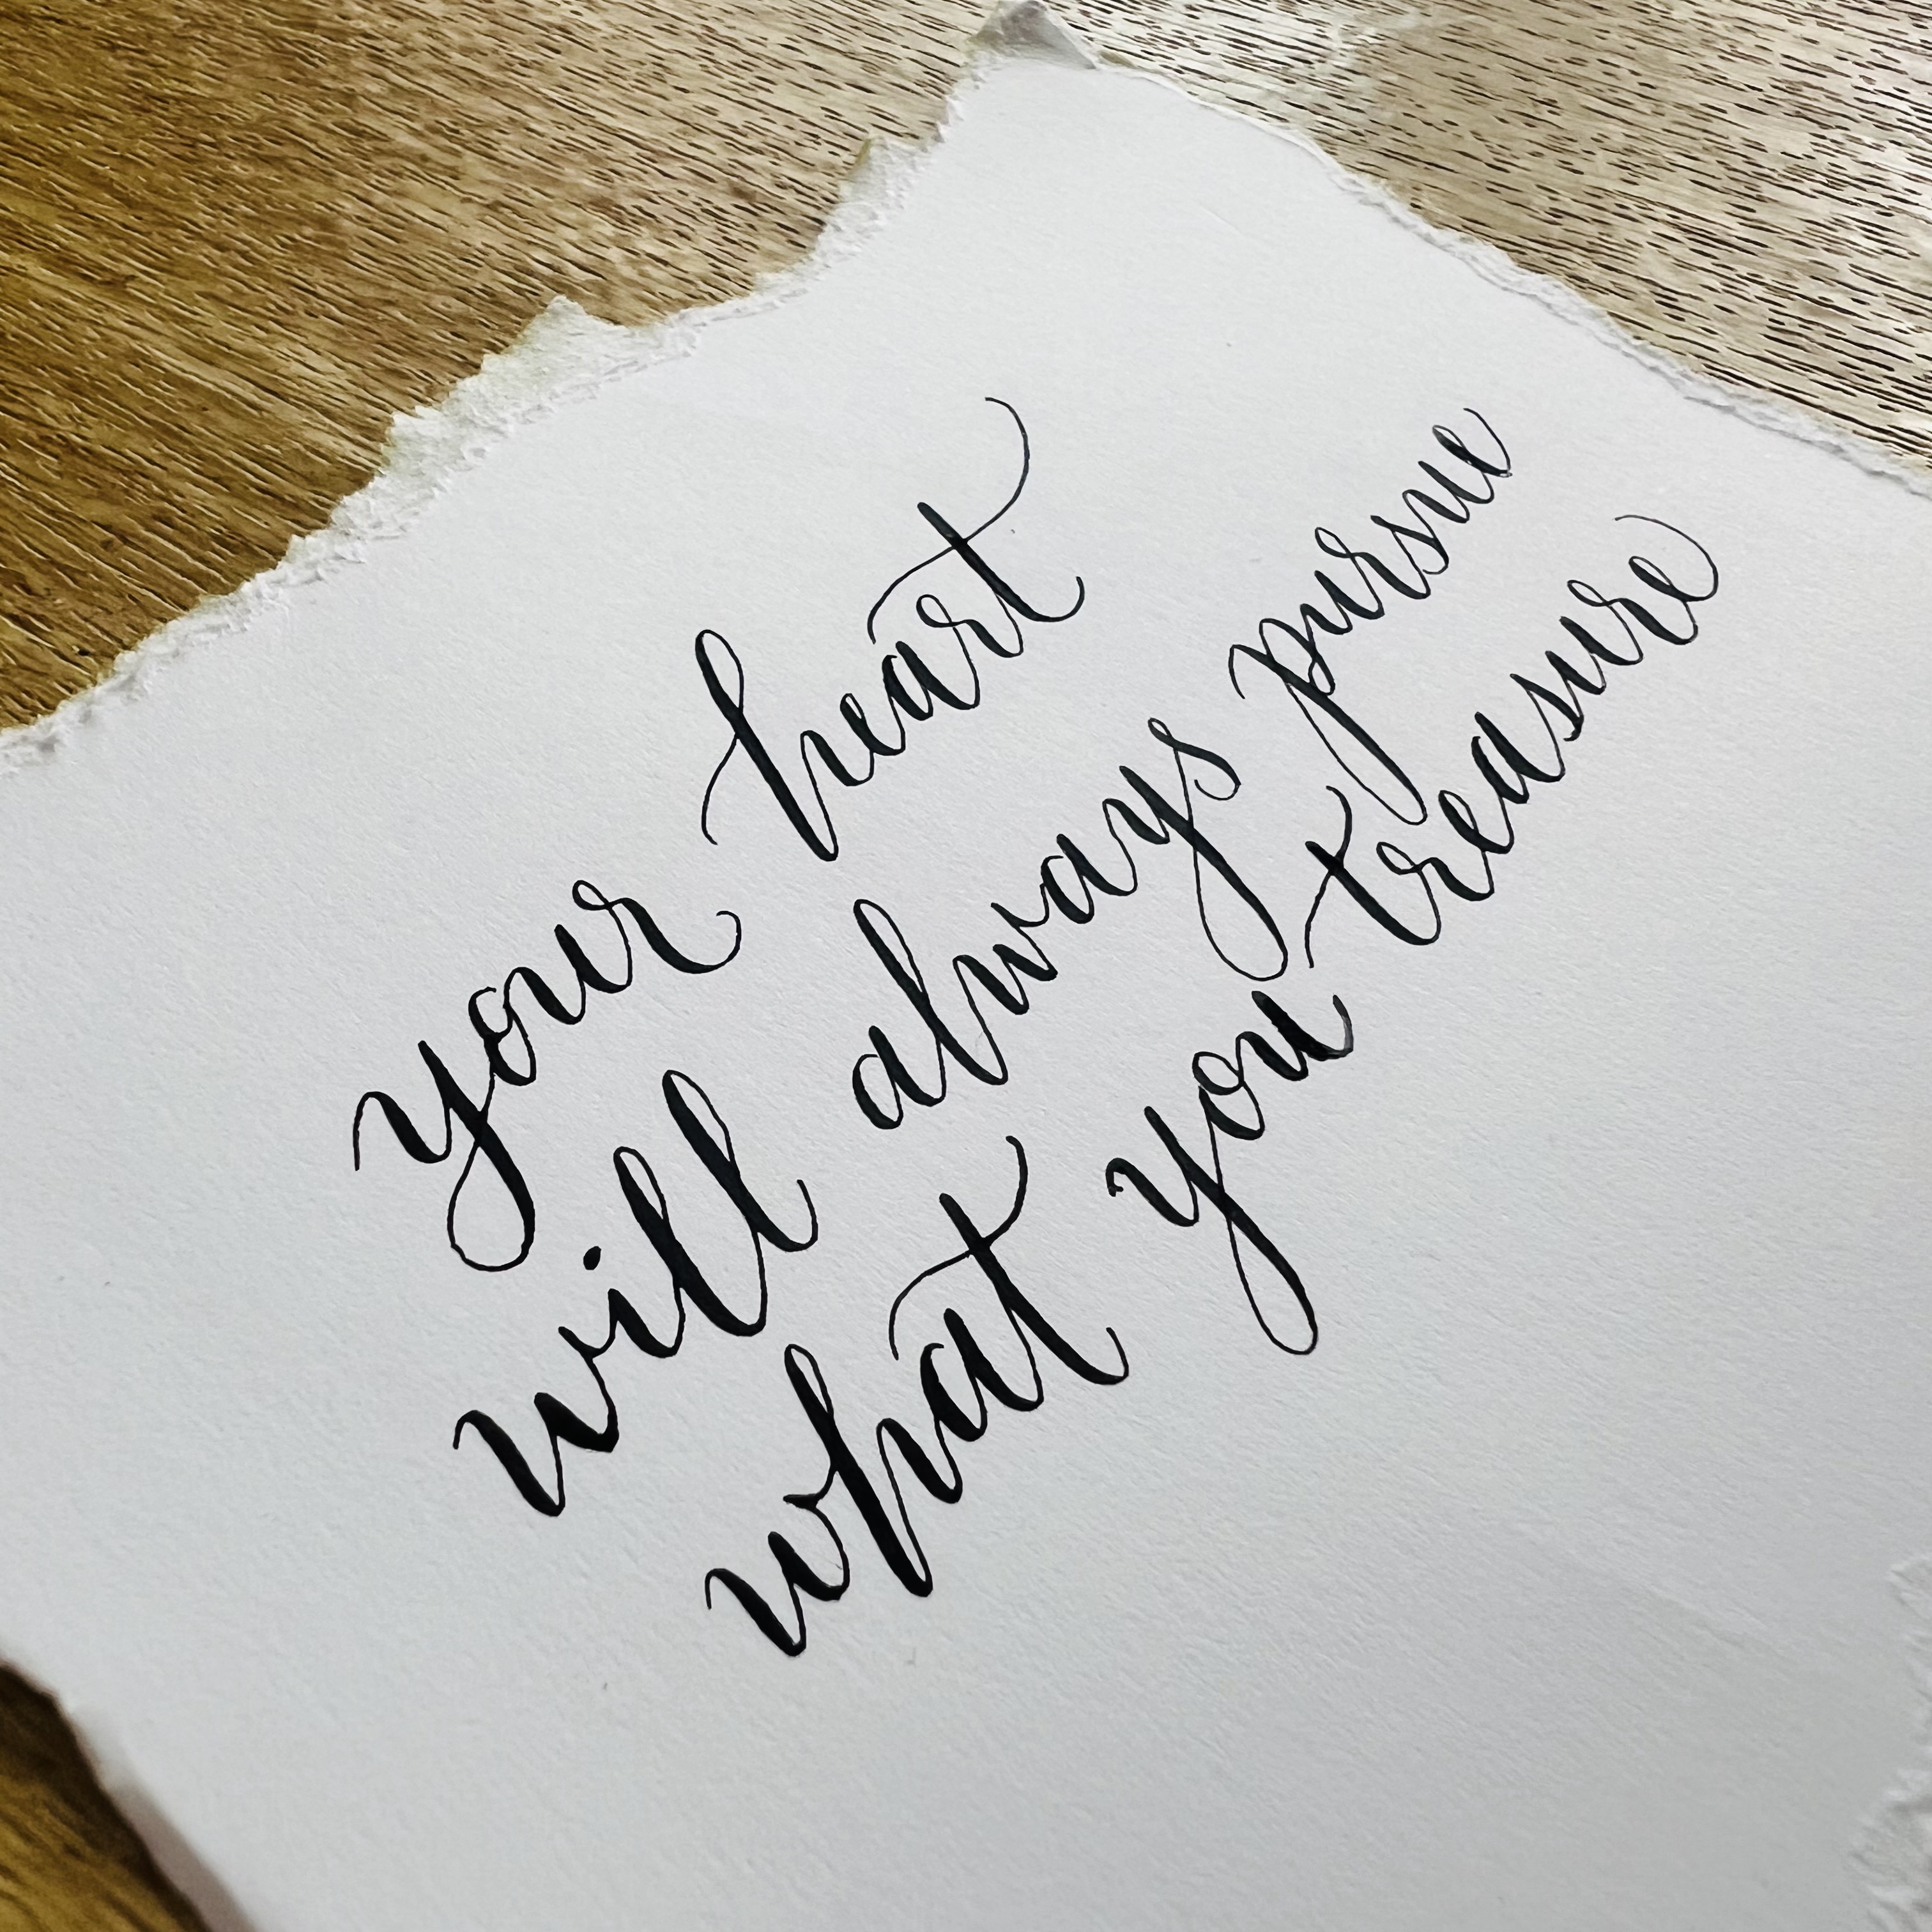 your heart
will always pursue
what you treasure